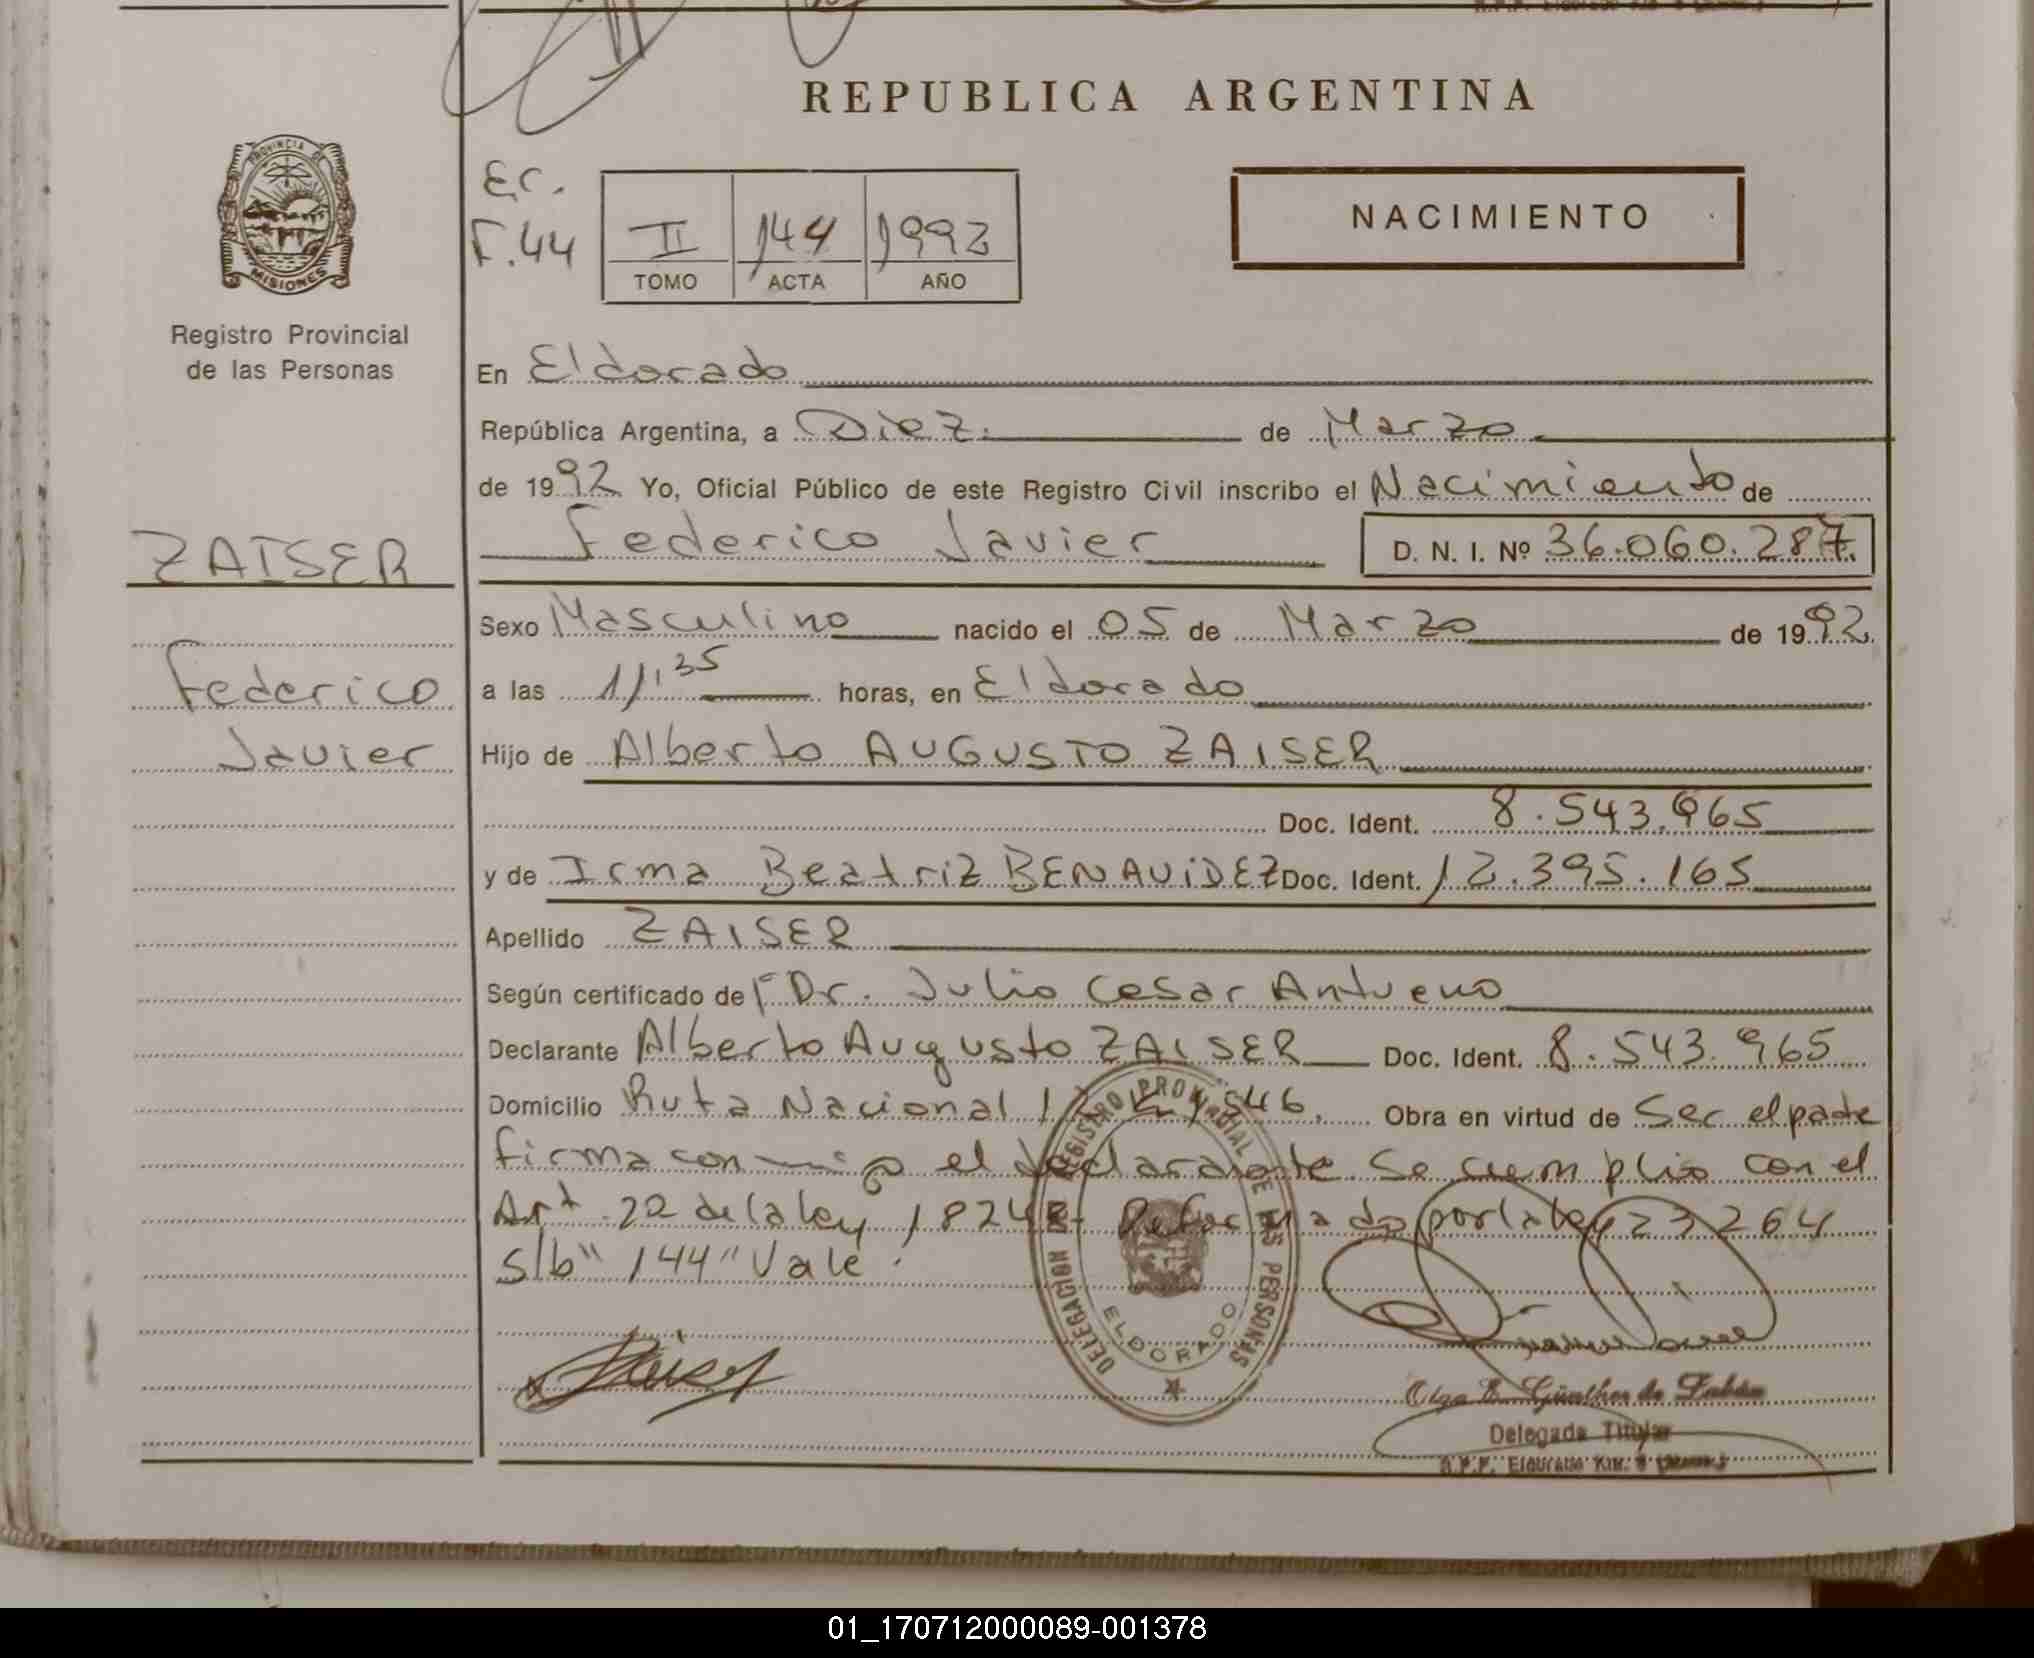 REPUBLICA ARGENTINA
PROVINCIA DE
MISIONES
Registro Provincial
de las Personas
Er.
F.44
II 144 1992
TOMO ACTA AÑO
NACIMIENTO
En Eldorado
República Argentina, a Diez. de Marzo
de 1992 Yo, Oficial Público de este Registro Civil inscribo el Nacimiento de
Federico Javier D. N. I. Nº 36.060.287.
ZAISER
Federico
Javier
Sexo Masculino nacido el 05 de Marzo de 1992.
a las 11,35 horas, en Eldorado
Hijo de Alberto AUGUSTO ZAISER
Doc. Ident. 8.543.965
y de Irma Beatriz BENAViDEZ Doc. Ident. 12.395.165
Apellido ZAISER
Según certificado del Dr. Julio Cesar Antueno
Declarante Alberto Augusto ZAISER Doc. Ident. 8.543.965
Domicilio Ruta Nacional 546. Obra en virtud de Ser el padre
firma con migo el declarante. Se cumplio con el
Art. 22 de la ley 18248- Reformado por la ley 23264
s/b "144" Vale.
DELEGACION DEL REGISTRO PROVINCIAL DE LAS PERSONAS
ELDORADO
Olga E. Günther de
Delegada Titular
R.P.P. Eldorado Km. 9
01_170712000089-001378